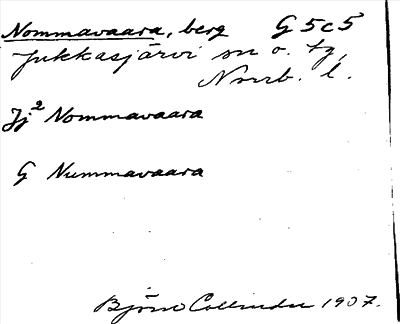 Nommavaara, berg G5c5
Jukkasjärvi sn o. tg,
Norrb. l.
Jj² Nommavaara
G Nummavaara
Björn Collinder 1907.